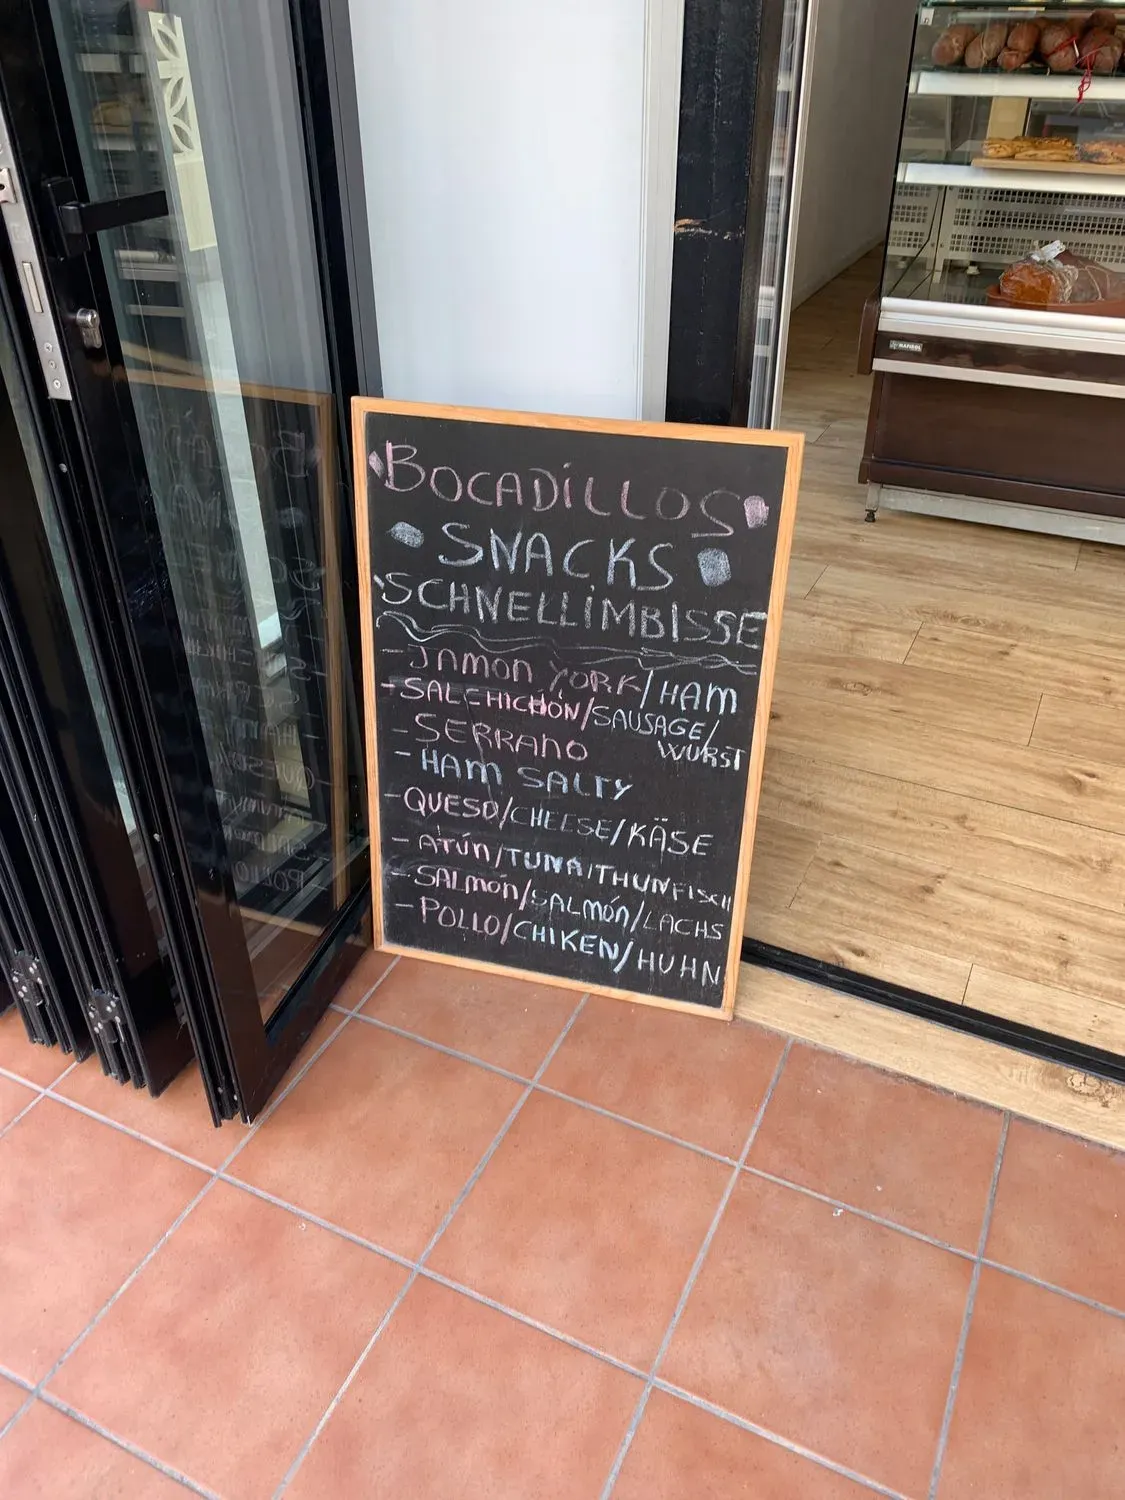 BOCADILLOS
SNACKS
SCHNELLIMBISSE
- JAMON YORK/HAM
- SALCHICHÓN/SAUSAGE/
WURST
- SERRANO
- HAM SALTY
- QUESO/CHEESE/KÄSE
- ATÚN/TUNA/THUNFISCH
- SALMÓN/SALMÓN/LACHS
- POLLO/CHIKEN/HUHN